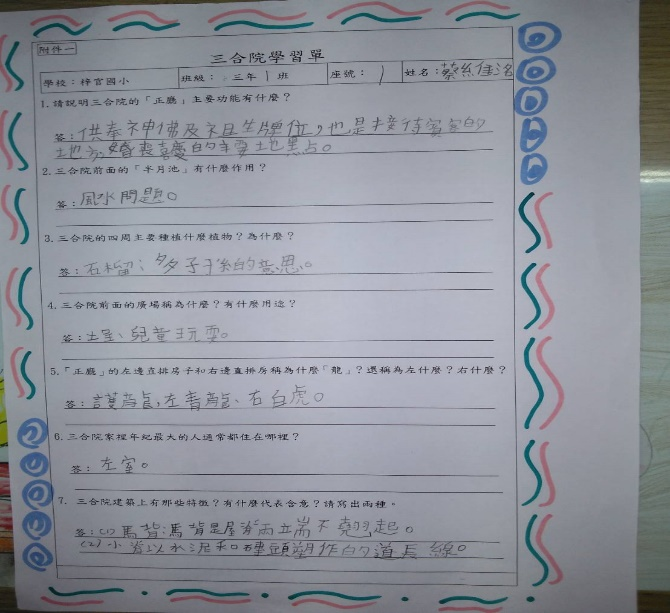 附件一
三合院學習單
學校：梓官國小 班級：三年1班 座號：1 姓名：蔡絲佳洺
1.請說明三合院的「正廳」主要功能有什麼？
答：供奉神佛及祖先牌位，也是接待賓客的
地方,婚喪喜慶的主要地點。
2.三合院前面的「半月池」有什麼作用？
答：風水問題。
3.三合院的四周主要種植什麼植物？為什麼？
答：石榴；多子孫的意思。
4.三合院前面的廣場稱為什麼？有什麼用途？
答：土埕、兒童玩耍。
5.「正廳」的左邊直排房子和右邊直排房稱為什麼「龍」？還稱為左什麼？右什麼？
答：護龍,左青龍、右白虎。
6.三合院家裡年紀最大的人通常都住在哪裡？
答：左室。
7.三合院建築上有那些特徵？有什麼代表含意？請寫出兩種。
答：(1)馬背：馬背是屋脊兩端不翹起。
(2)小 脊以水泥和磚頭塑作的道長線。